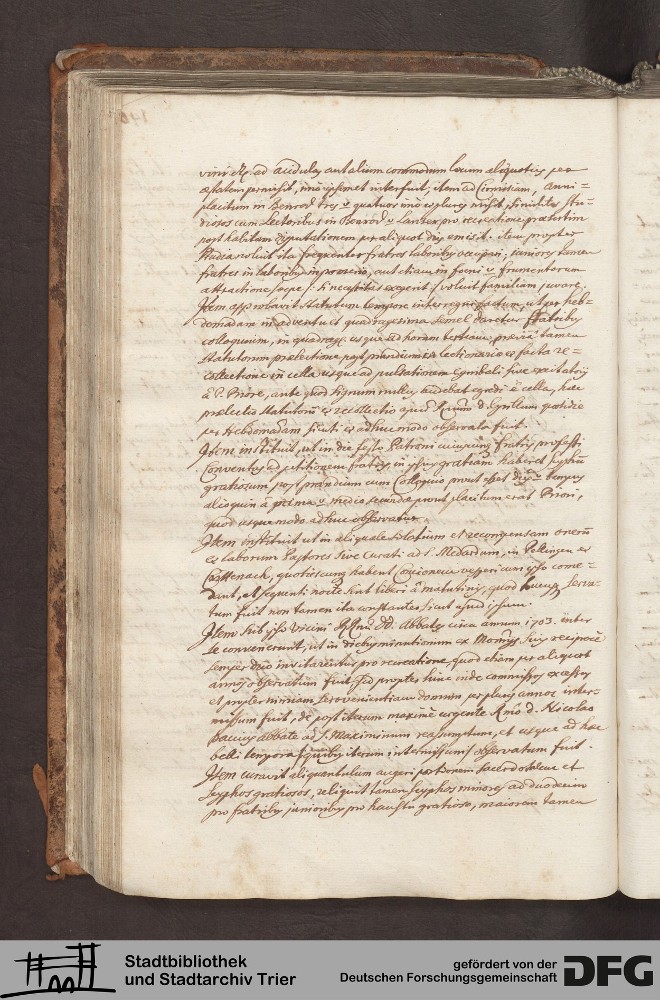 vini etc. ad acidulas aut alium commodum locum aliquoties per
aestatem permisit, imo ipsemet interfuit, item ad Comitiam, anni=
placitum in Benrod tres v quatuor imo et plures misit, similiter stu=
diosos cum Lectoribus in Benrod v lanter pro recreatione praesertim
post habitam disputationem per aliquot dies emisit. item propter
studia voluit ita frequenter fratres laboribus occupari, juniores tamen
fratres in laboribus in pomerio, aut etiam in foeni v frumentorum
attractione saepe, si necessitas exegerit, voluit familiam juvare.
Item approbavit statutum tempore interregni factum, ut per heb=
domadam in adventu et quadragesima semel daretur fratribus
colloquium, in quadrages. usque ad horam tertiam, praevia tamen
statutorum praelectione post prandium ex lectionario et facta re=
collectione in cella usque ad pulsationem cymbali sive excitatorij
à P. Priore, ante quod signum nullus audebat egredi è cella, haec
praelectio statutorum et recollectio apud Rmum D. Cyrillum quotidie
per Hebdomadam fuit et adhuc modo observata fuit.
Item instituit, ut in die festo Patroni cuiuscunque fratris professi
Conventus ad petitionem fratris in ipsius gratiam haberet scyphum
gratiosum post prandium cum Colloquio prout esset dies v tempus
alioquin à prima v media secunda prout placitum erat Priori,
quod usque modo adhuc observatur.
Item instituit ut in aliquale solatium et recompensam onerum
et laborum Pastores sive curati ad S. Medardum, in Pellingen et
Crettenach, quotiescunque habent Concionem vesperi cum ipso come=
dant, et sequenti nocte sint liberi à matutinis, quod hucusque serva=
tum fuit non tamen ita constanter sicut apud ipsum.
Item sub ipso vicini RRmi DD. Abbates circa annum 1703. inter
se convenerunt, ut in diebus minutionum ex Monrijs suis reciproce
semper duo invitarentur pro recreatione, quod etiam per aliquot
annos observatum fuit, sed propter hinc inde commissos excessus
et propter nimiam inconvenientiam domum per plures annos inter=
missum fuit, de post iterum maxime urgente Rmo D. Nicolao
Paccius Abbate ad S. Maximinum reassumptum, et usque ad haec
belli tempora (quibus iterum intermissum) observatum fuit.
Item curavit aliquantulum augeri portionem sacerdotalem et
scyphos gratiosos, reliquit tamen scyphos minores ad duodecim
pro fratribus junioribus pro haustu gratioso, maiorem tamen
Stadtbibliothek
und Stadtarchiv Trier
gefördert von der
Deutschen Forschungsgemeinschaft
DFG